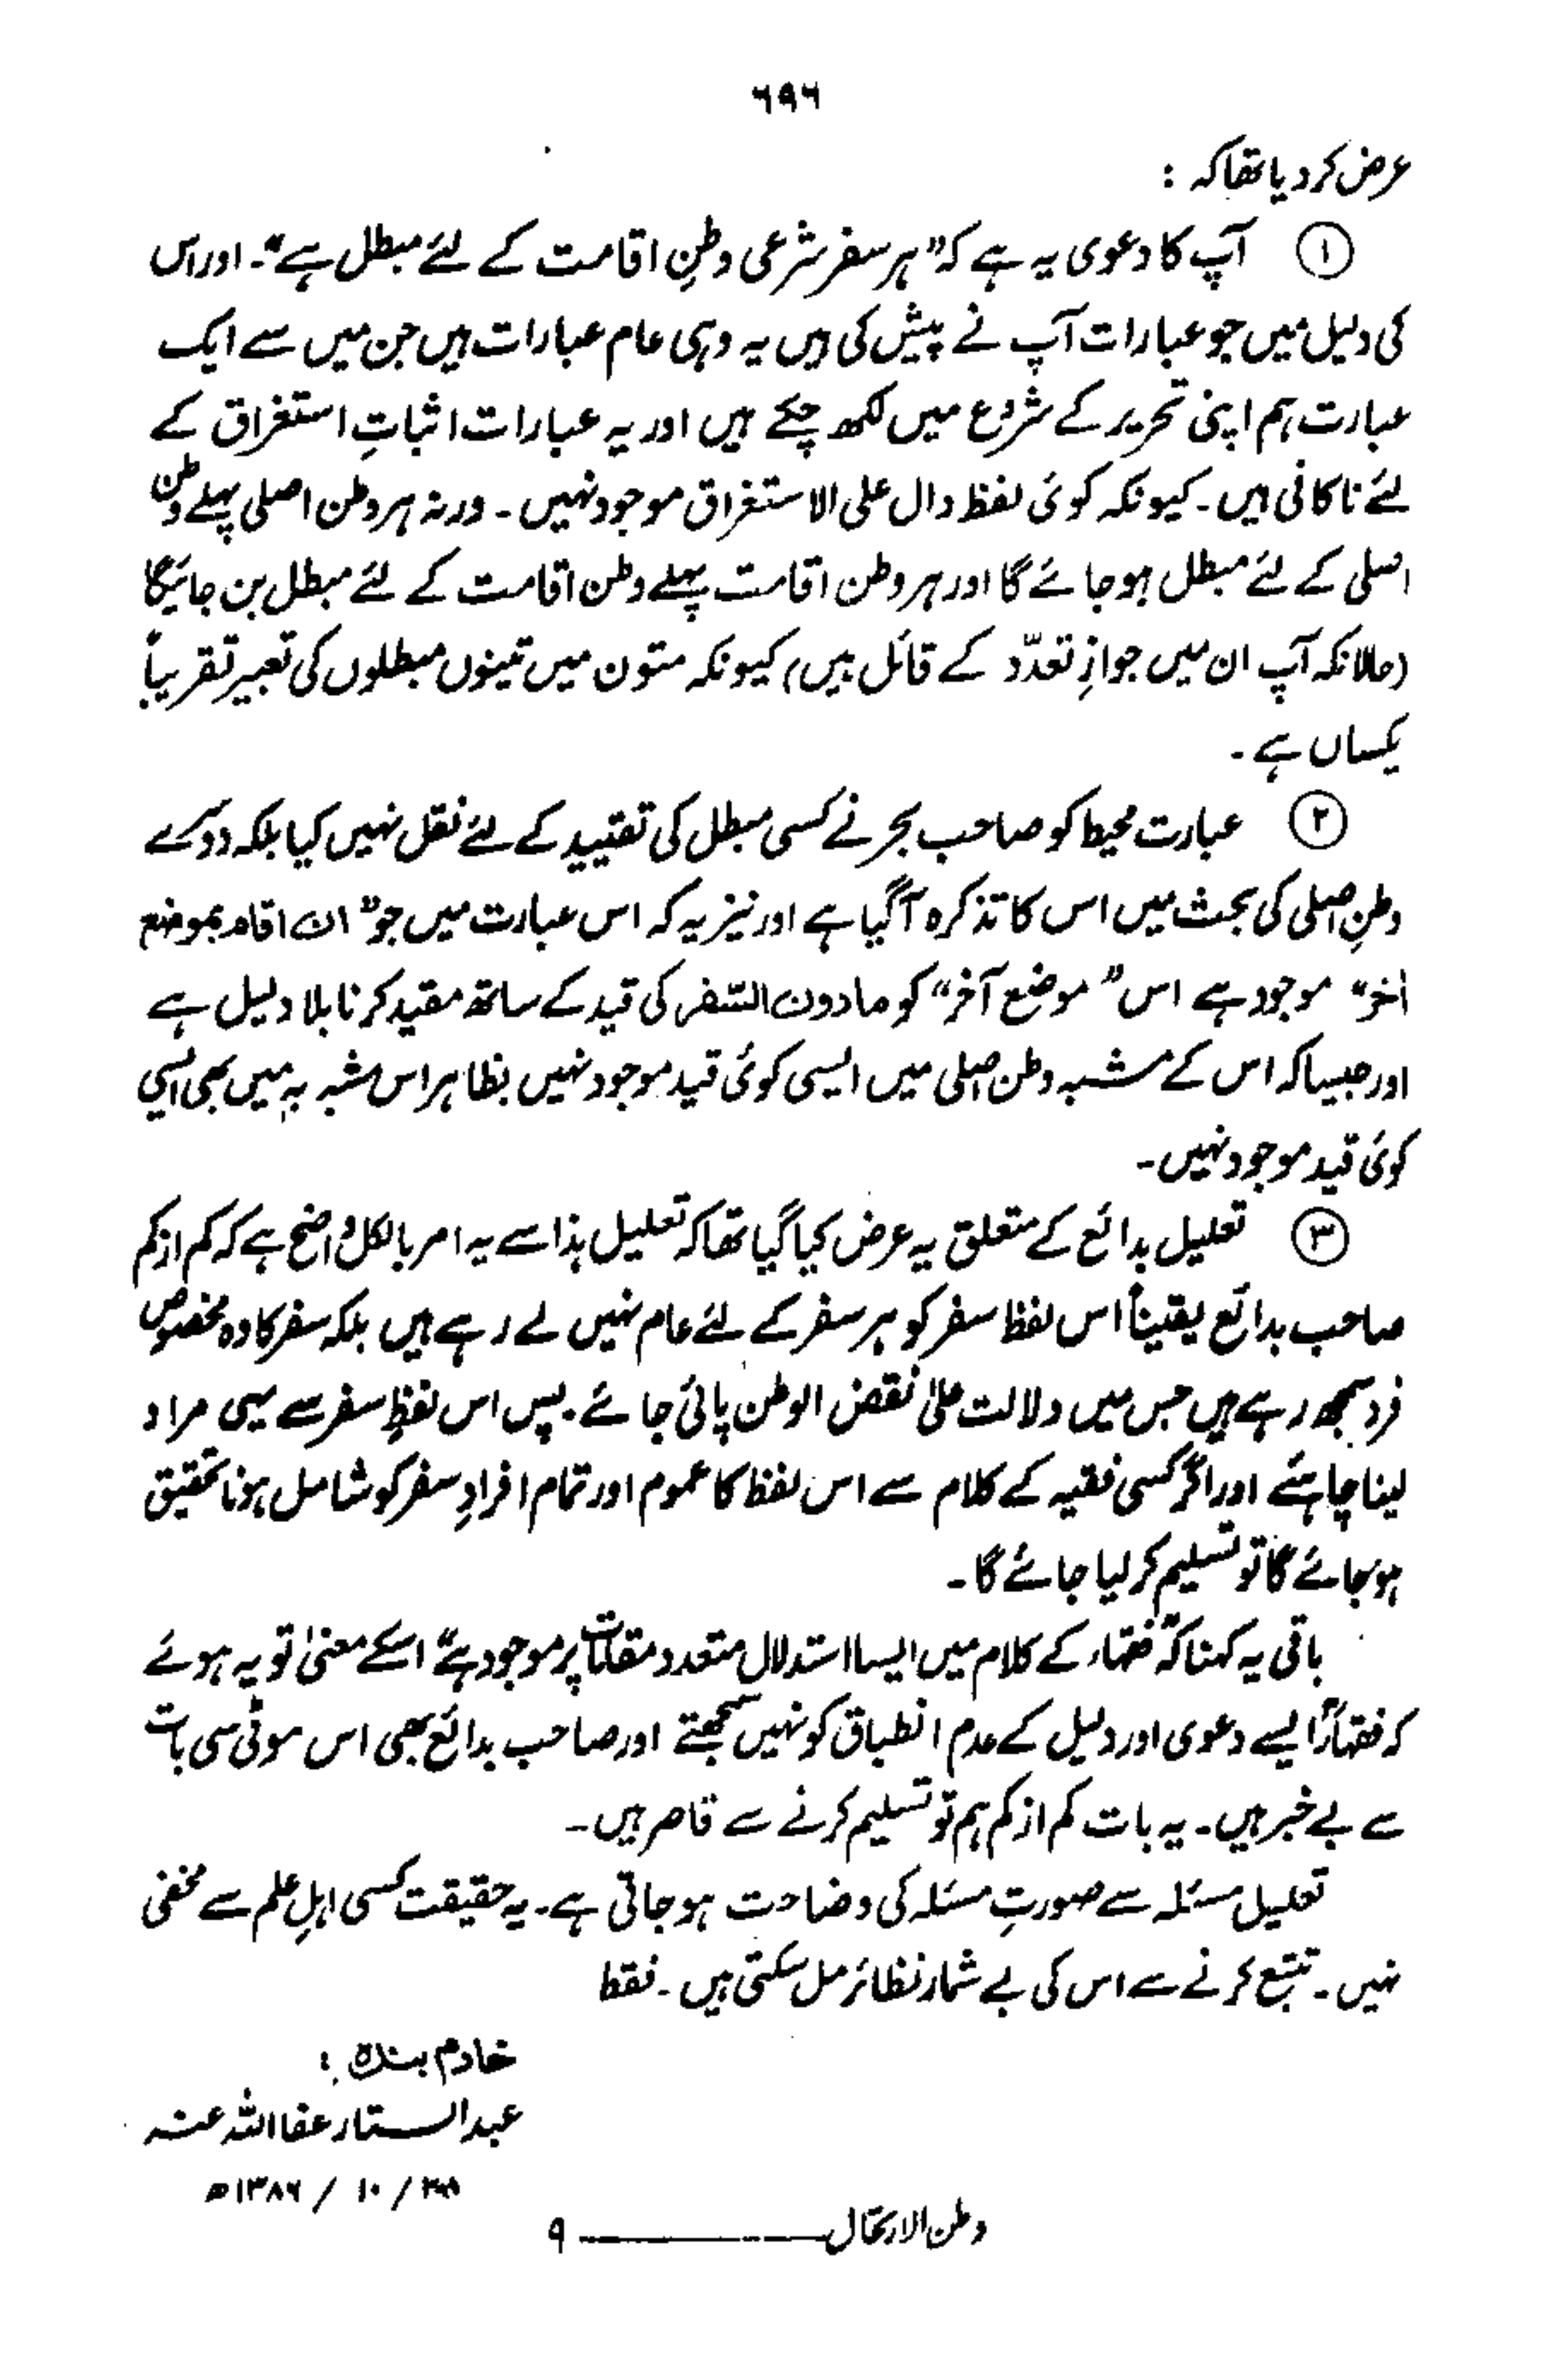 ۶۹۶
عرض کر دیا تھا کہ :
① آپ کا دعوی یہ ہے کہ "ہر سفر شرعی وطنِ اقامت کے لئے مبطل ہے"۔ اور اس
کی دلیل میں جو عبارات آپ نے پیش کی ہیں یہ وہی عام عبارات ہیں جن میں سے ایک
عبارت ہم اپنی تحریر کے شروع میں لکھ چکے ہیں اور یہ عبارات اثباتِ استغراق کے
لئے ناکافی ہیں۔ کیونکہ کوئی لفظ دال علی الاستغراق موجود نہیں۔ ورنہ ہر وطن اصلی پہلے وطن
اصلی کے لئے مبطل ہو جائے گا اور ہر وطن اقامت پہلے وطن اقامت کے لئے مبطل بن جائیگا
(حالانکہ آپ ان میں جوازِ تعدّد کے قائل ہیں) کیونکہ متون میں تینوں مبطلوں کی تعبیر تقریباً
یکساں ہے۔
② عبارت محیط کو صاحب بحر نے کسی مبطل کی تقیید کے لئے نقل نہیں کیا بلکہ دوسرے
وطنِ اصلی کی بحث میں اس کا تذکرہ آگیا ہے اور نیز یہ کہ اس عبارت میں جو "ان اقام بموضع
اٰخر" موجود ہے اس "موضع آخر" کو مادون السّفر کی قید کے ساتھ مقید کرنا بلا دلیل ہے
اور جیسا کہ اس کے مشبہ وطن اصلی میں ایسی کوئی قید موجود نہیں بظاہر اس مشبہ بہ میں بھی ایسی
کوئی قید موجود نہیں۔
③ تعلیل بدائع کے متعلق یہ عرض کیا گیا تھا کہ تعلیل ہذا سے یہ امر بالکل واضح ہے کہ کم از کم
صاحب بدائع یقیناً اس لفظ سفر کو ہر سفر کے لئے عام نہیں لے رہے ہیں بلکہ سفر کا وہ مخصوص
فرد سمجھ رہے ہیں جس میں دلالت علیٰ نقض الوطن پائی جائے۔ پس اس لفظِ سفر سے یہی مراد
لینا چاہئے اور اگر کسی فقیہ کے کلام سے اس لفظ کا عموم اور تمام افرادِ سفر کو شامل ہونا تحقیق
ہو جائے گا تو تسلیم کر لیا جائے گا۔
باقی یہ کہنا کہ "فقہاء کے کلام میں ایسا استدلال متعدد مقامات پر موجود ہے" اسکے معنیٰ تو یہ ہوئے
کہ فقہاءؒ ایسے دعوی اور دلیل کے عدم انطباق کو نہیں سمجھتے اور صاحب بدائع بھی اس موٹی سی بات
سے بے خبر ہیں۔ یہ بات کم از کم ہم تو تسلیم کرنے سے قاصر ہیں۔
تعلیل مسئلہ سے صورتِ مسئلہ کی وضاحت ہو جاتی ہے۔ یہ حقیقت کسی اہلِ علم سے مخفی
نہیں۔ تتبع کرنے سے اس کی بے شمار نظائر مل سکتی ہیں۔ فقط
خادم بندہ :
عبدالستار عفا اللہ عنہ
/ ۱۰ / ۱۳۸۶ھ
وطن الارتحال ــــــــــ ۹